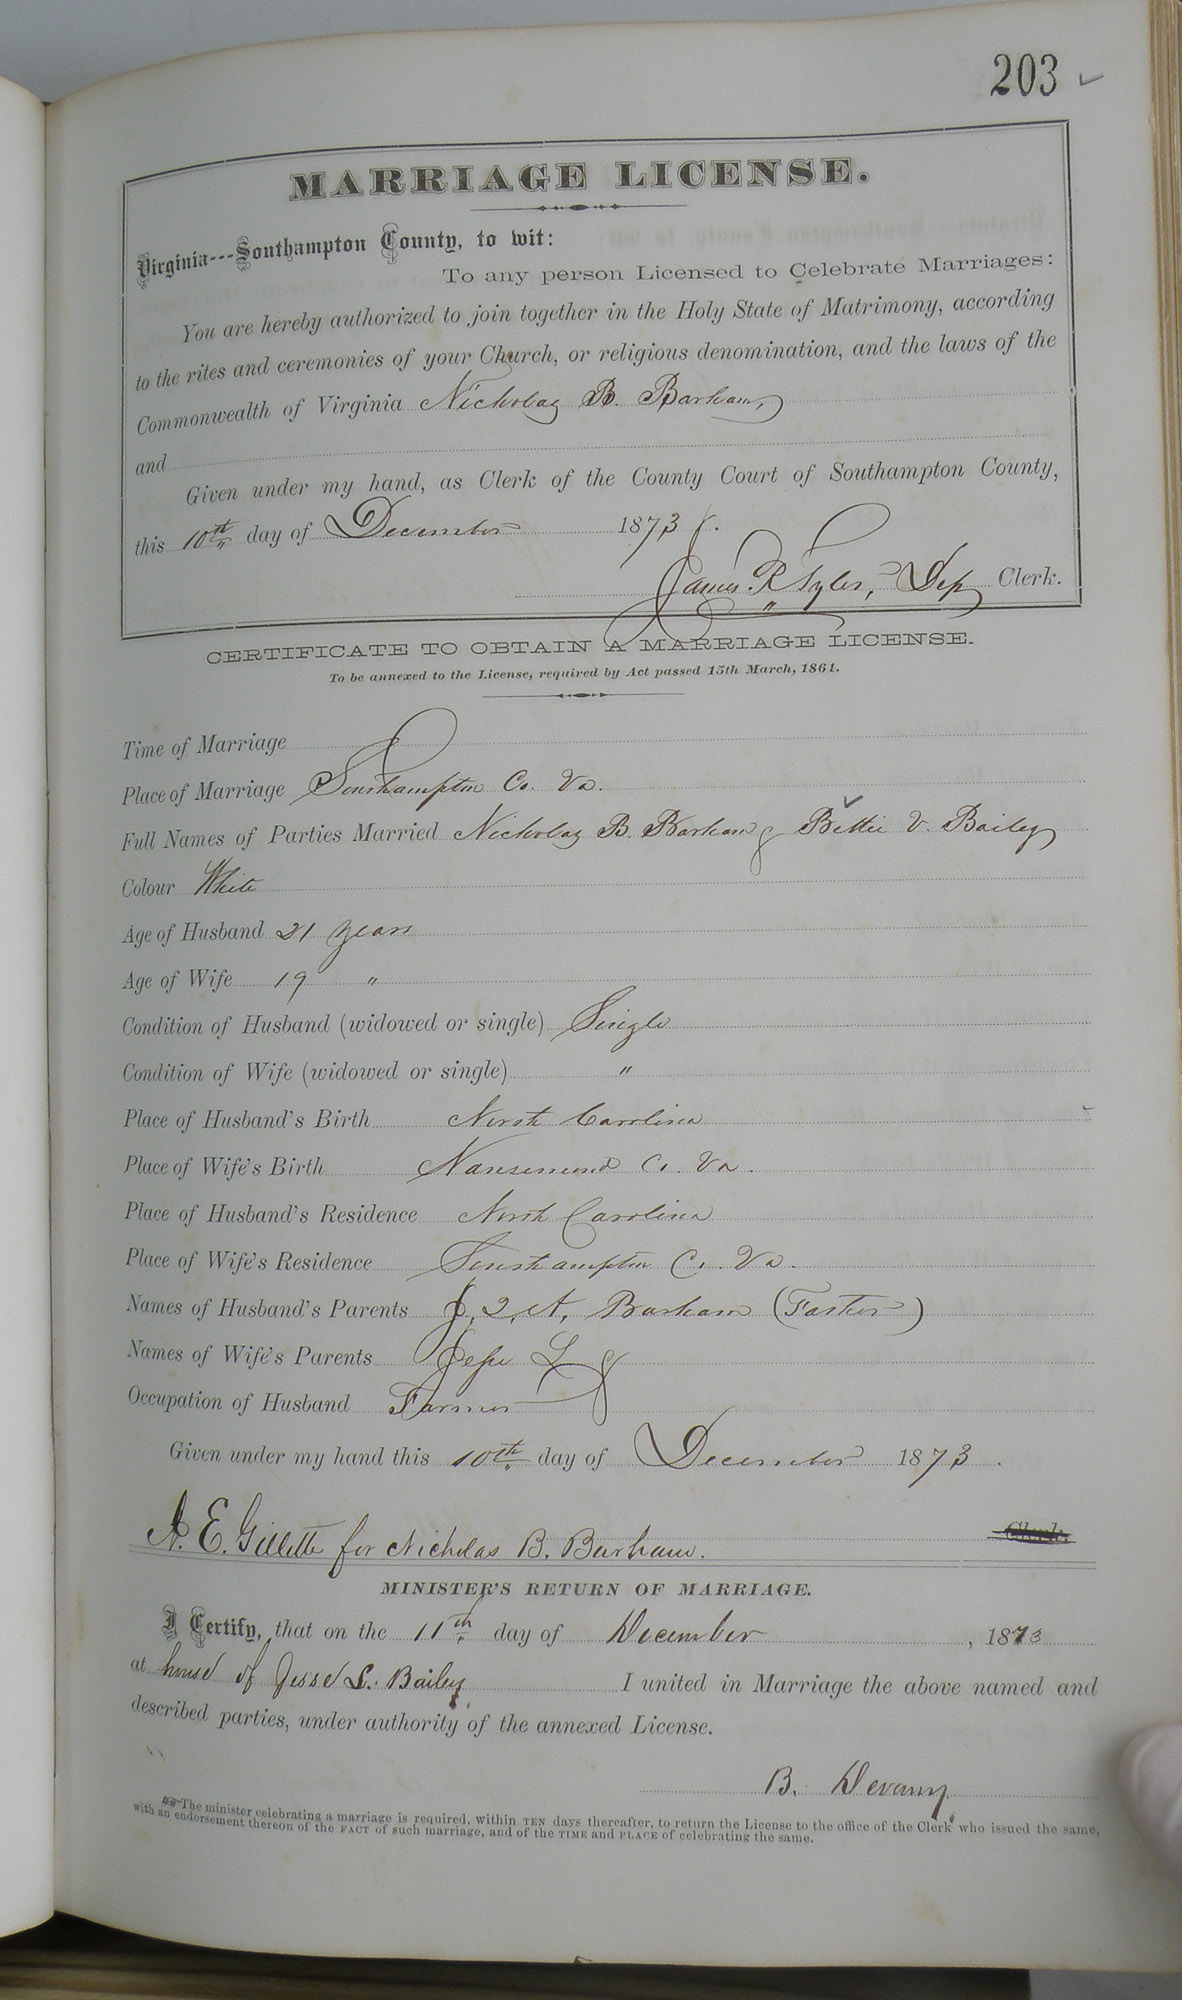 203
MARRIAGE LICENSE.
Virginia---Southampton County, to wit:
To any person Licensed to Celebrate Marriages:
You are hereby authorized to join together in the Holy State of Matrimony, according
to the rites and ceremonies of your Church, or religious denomination, and the laws of the
Commonwealth of Virginia Nicholas B. Barham,
and
Given under my hand, as Clerk of the County Court of Southampton County,
this 10th day of December 1873.
James R Tyler, Dep Clerk.
CERTIFICATE TO OBTAIN A MARRIAGE LICENSE.
To be annexed to the License, required by Act passed 15th March, 1861.
Time of Marriage
Place of Marriage Southampton Co. Va.
Full Names of Parties Married Nicholas B. Barham & Bettie V. Bailey
Colour White
Age of Husband 21 years
Age of Wife 19 "
Condition of Husband (widowed or single) Single
Condition of Wife (widowed or single) "
Place of Husband's Birth North Carolina
Place of Wife's Birth Nansemond Co. Va.
Place of Husband's Residence North Carolina
Place of Wife's Residence Southampton Co. Va.
Names of Husband's Parents J. Q. A. Barham (Father)
Names of Wife's Parents Jesse L &
Occupation of Husband Farmer
Given under my hand this 10th day of December 1873.
A. E. Gillette for Nicholas B. Barham. Clerk.
MINISTER'S RETURN OF MARRIAGE.
I Certify, that on the 11th day of December, 1873
at house of Jesse L. Bailey I united in Marriage the above named and
described parties, under authority of the annexed License.
B. Devany
The minister celebrating a marriage is required, within TEN days thereafter, to return the License to the office of the Clerk who issued the same,
with an endorsement thereon of the FACT of such marriage, and of the TIME and PLACE of celebrating the same.